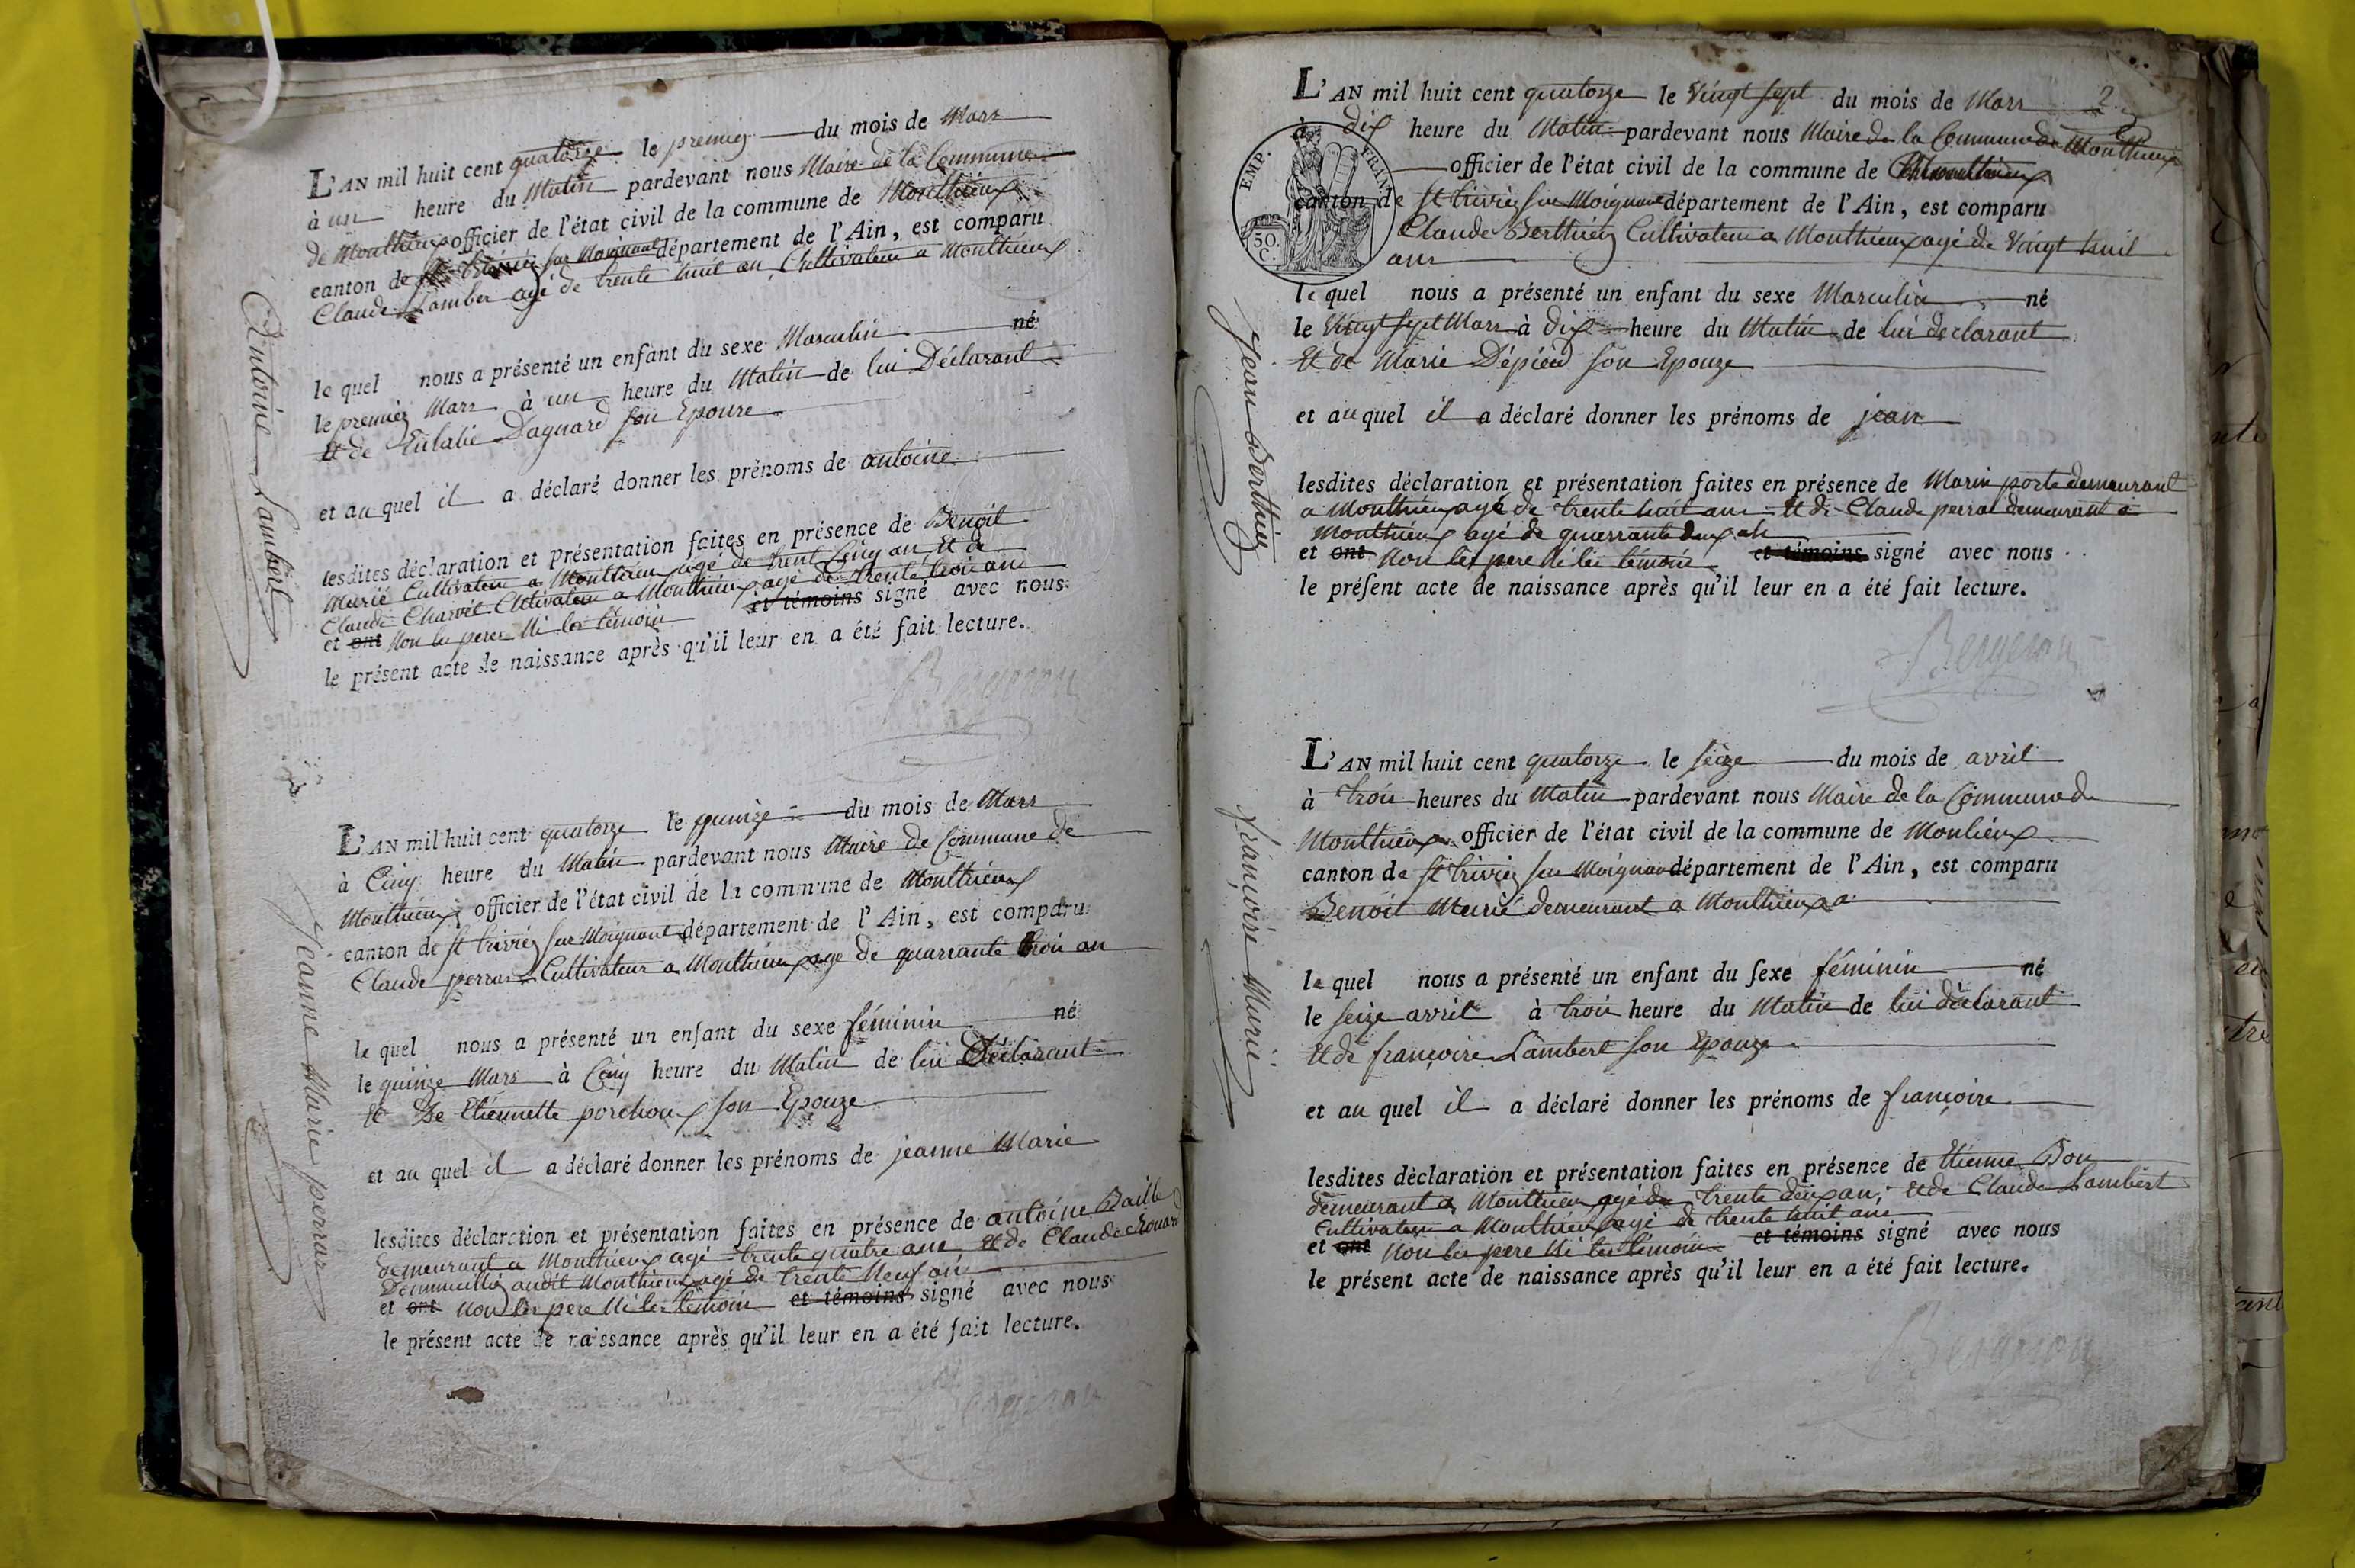 L'AN mil huit cent quatorze le premier du mois de Mars
à un heure du Matin pardevant nous Maire de la Commune
de Monthieux officier de l'état civil de la commune de Monthieux
canton de St trivier sur Moignant département de l'Ain, est comparu
Claude Lamber agé de trente huit an Cultivateur a Monthieux
le quel nous a présenté un enfant du sexe Masculin né
le premier Mars à un heure du Matin de lui Déclarant
Et de Eulalie Dagnard son Epouse
et au quel il a déclaré donner les prénoms de antoine
lesdites déclaration et présentation faites en présence de Benoit
Murié Cultivateur a Monthieux agé de trent Cinq an Et de
Claude Charvet Cultivateur a Monthieux agé de trente trois an
et ont Non les peres Ni les témoin et témoins signé avec nous
le présent acte de naissance après qu'il leur en a été fait lecture.
Bergeron
Antoine Lambert
L'AN mil huit cent quatorze le quinze du mois de Mars
à Cinq heure du Matin pardevant nous Maire de Commune de
Monthieux officier de l'état civil de la commune de Monthieux
canton de St trivier sur Moignant département de l'Ain, est comparu
Claude perras Cultivateur a Monthieux age de quarrante trois an
le quel nous a présenté un enfant du sexe féminin né
le quinze Mars à Cinq heure du Matin de lui Déclarant
Et De Etiennette porchoux son Epouze
et au quel il a déclaré donner les prénoms de jeanne Marie
lesdites déclaration et présentation faites en présence de antoine Baille
demeurant a Monthieux agé trente quatre ans Et de Claude
Dommicillié audit Monthieux agé de trente Neuf an
et ont Non les pere Ni les témoin et témoins signé avec nous
le présent acte de naissance après qu'il leur en a été fait lecture.
Bergeron
Jeanne Marie perras
2
L'AN mil huit cent quatorze le Vingt sept du mois de Mars
à dix heure du Matin pardevant nous Maire de la Commune de Monthieux
officier de l'état civil de la commune de Monthieux
canton de St trivier sur Moignant département de l'Ain, est comparu
Claude Berthier Cultivateur a Monthieux agé de Vingt huit
ans
EMP. FRAN.
50. C.
le quel nous a présenté un enfant du sexe Masculin né
le Vingt sept Mars à dix heure du Matin de lui declarant
Et de Marie Dépied son Epouze
et au quel il a déclaré donner les prénoms de jean
lesdites déclaration et présentation faites en présence de Marin porte demeurant
a Monthieux agé de trente huit ans Et de Claude perras demeurant a
Monthieux agé de quarrante deux an
et ont Non les pere Ni les témoin et témoins signé avec nous
le présent acte de naissance après qu'il leur en a été fait lecture.
Bergeron
Jean Berthier
L'AN mil huit cent quatorze le seize du mois de avril
à trois heures du Matin pardevant nous Maire de la Commune de
Monthieux officier de l'état civil de la commune de Monlieux
canton de St trivier sur Moignan département de l'Ain, est comparu
Benoit Murié demeurant a Monthieux
le quel nous a présenté un enfant du sexe féminin né
le seize avril à trois heure du Matin de lui déclarant
Et de françoise Lambert son Epouze
et au quel il a déclaré donner les prénoms de françoise
lesdites déclaration et présentation faites en présence de Etienne Bon
demeurant a Monthieux agé de trente deux an, Et de Claude Lambert
Cultivateur a Monthieux agé de trente huit ans
et ont Non les pere Ni les témoin et témoins signé avec nous
le présent acte de naissance après qu'il leur en a été fait lecture.
Bergeron
françoise Murié